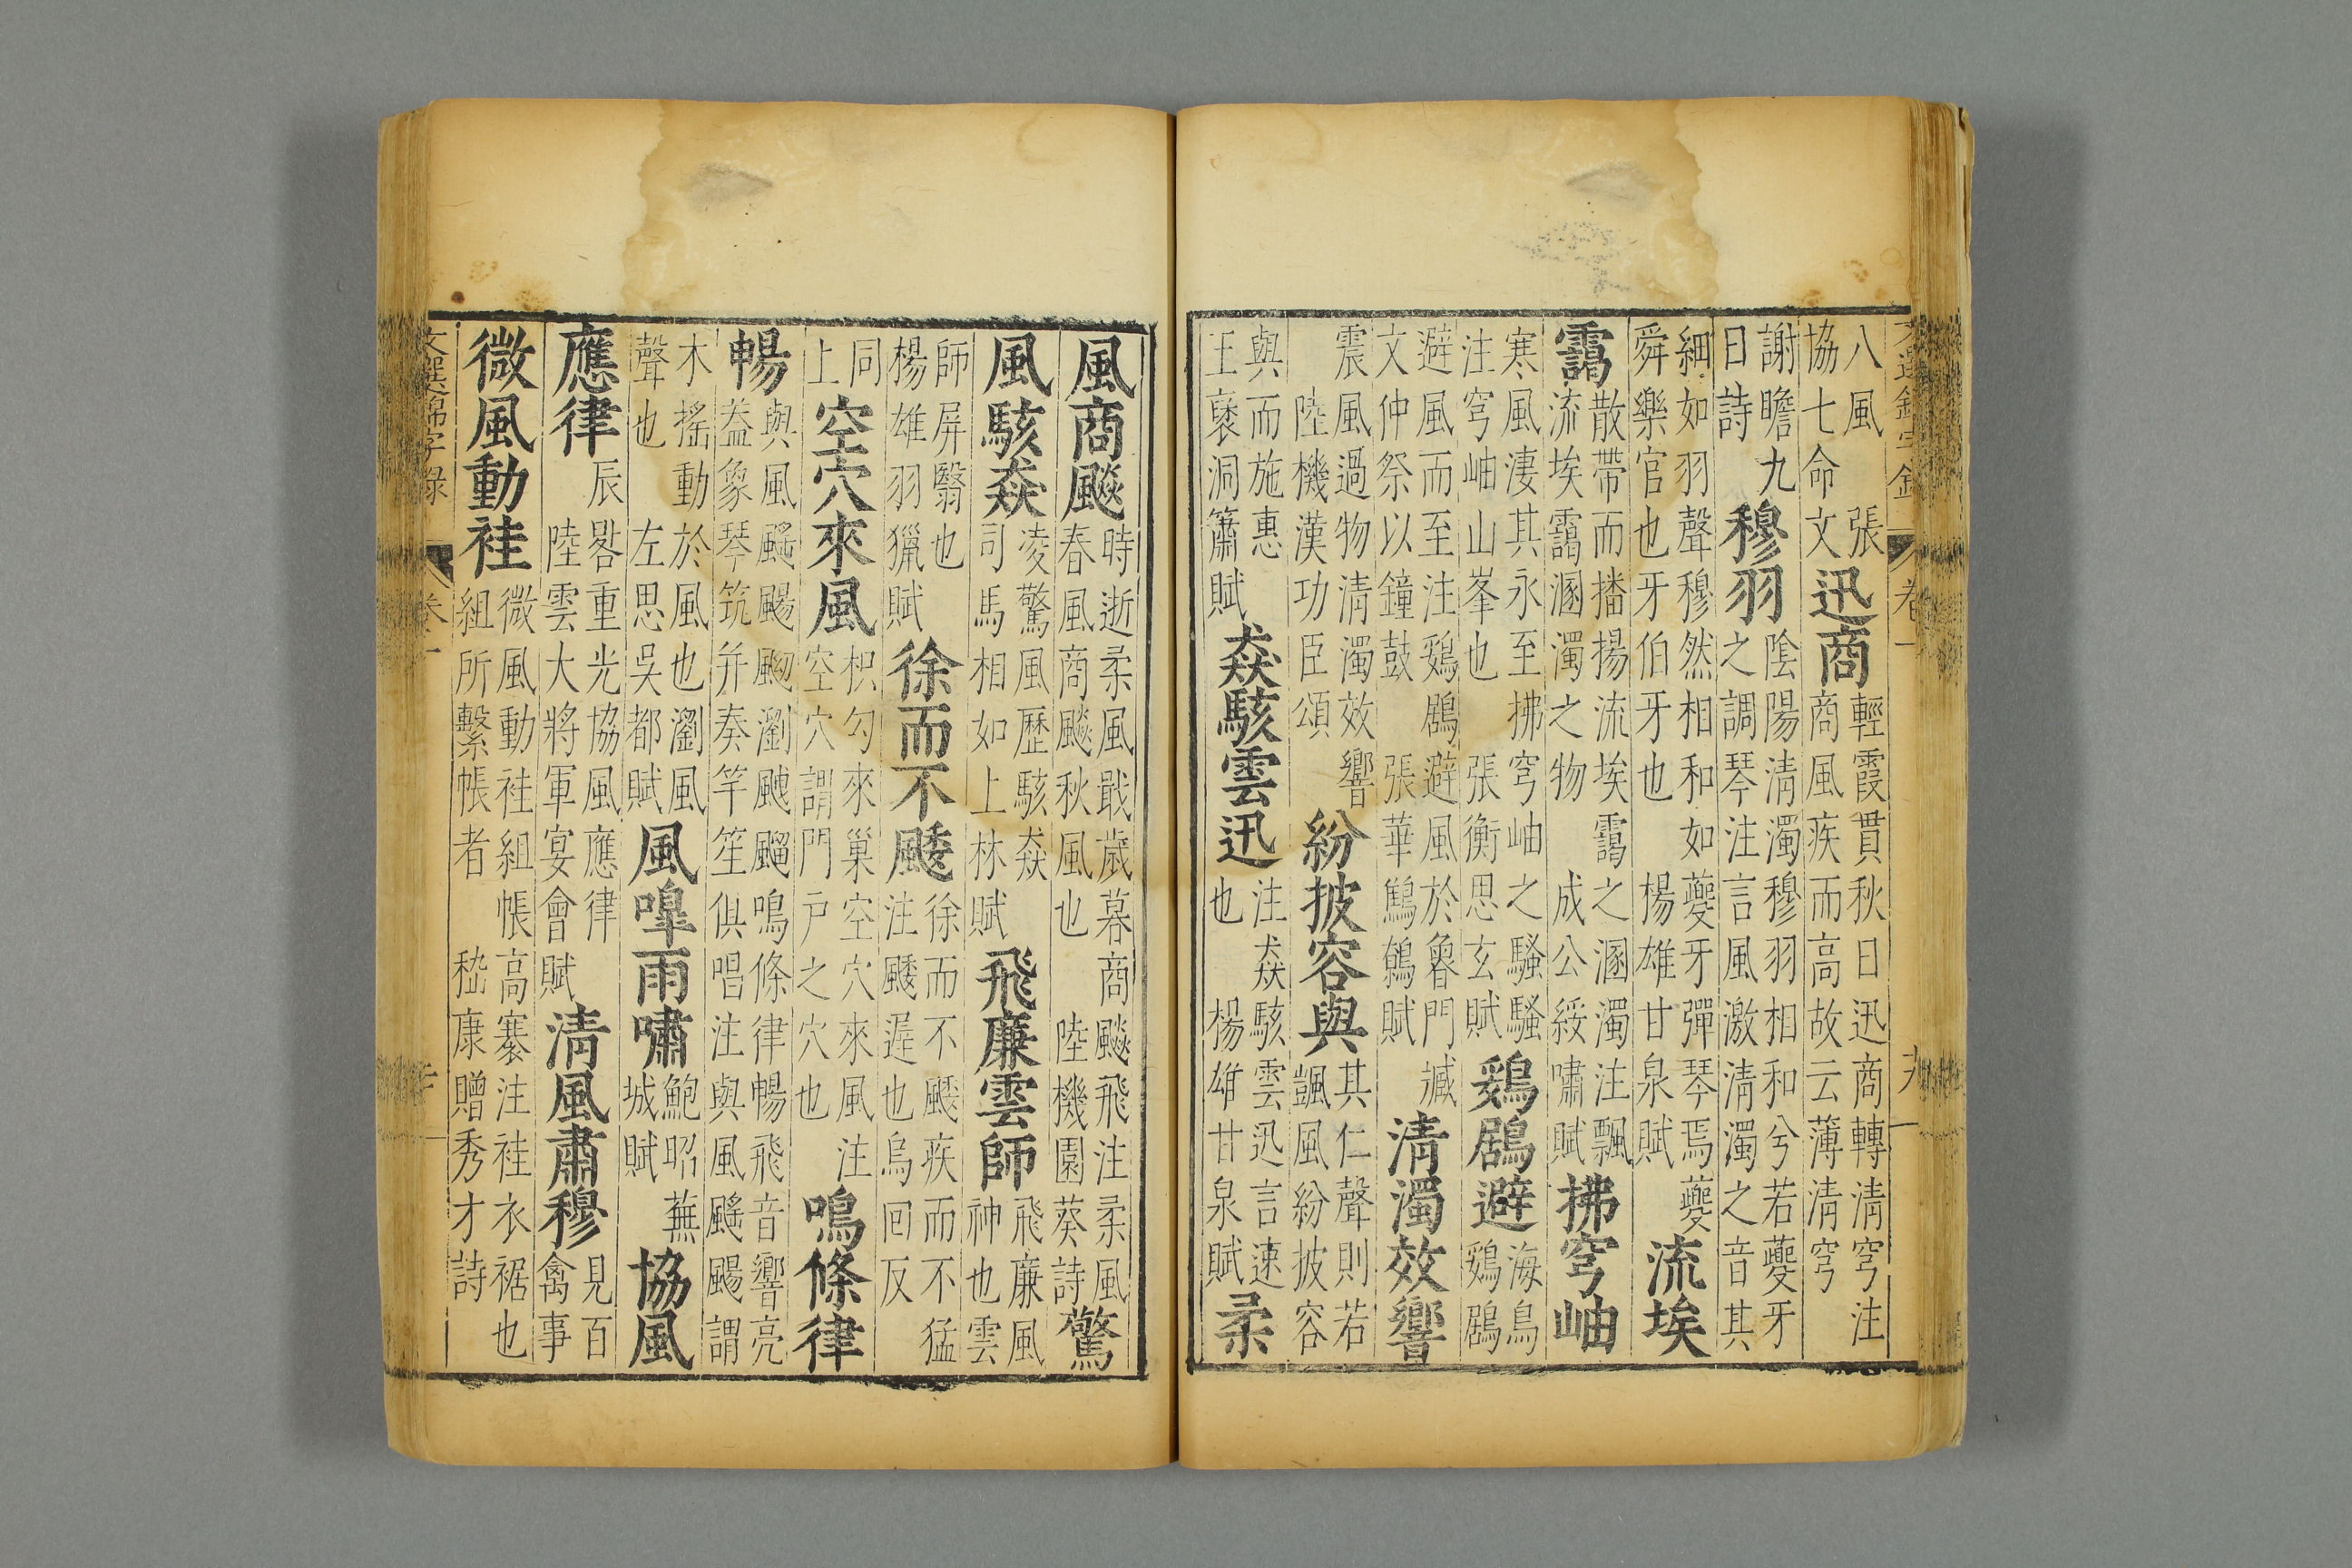 文選錦字錄 卷一 九
八風張協七命文迅商輕霞貫秋日迅商轉清穹注商風疾而高故云薄清穹
謝瞻九日詩穆羽陰陽清濁穆羽相和兮若夔牙之調琴注言風激清濁之音其
細如羽聲穆然相和如夔牙彈琴焉夔舜樂官也牙伯牙也楊雄甘泉賦流埃
靄散帶而播揚流埃靄之溷濁注飄流埃靄溷濁之物成公綏嘯賦拂穹岫
寒風淒其永至拂穹岫之騷騷注穹岫山峯也張衡思玄賦鷄鶋避海鳥鷄鶋
避風而至注鷄鶋避風於魯門臧文仲祭以鐘鼓張華鷦鷯賦清濁效響
震風過物清濁效響陸機漢功臣頌紛披容與其仁聲則若颽風紛披容
與而施惠王襃洞簫賦猋駭雲迅注猋駭雲迅言速也楊雄甘泉賦柔
風商飇時逝柔風戢歲暮商飇飛注柔風春風商飇秋風也陸機園葵詩驚
風駭猋凌驚風歷駭猋司馬相如上林賦飛廉雲師飛廉風神也雲
師屏翳也楊雄羽獵賦徐而不䬐徐而不䬐疾而不猛注䬐遲也烏回反
同上空穴來風枳勾來巢空穴來風注空穴謂門戶之穴也鳴條律
暢與風颻颺瀏飀鳴條律暢飛音響亮蓋象琴筑并奏竽笙俱唱注與風颻颺謂
木搖動於風也瀏風聲也左思吳都賦風嘷雨嘯鮑昭蕪城賦協風
應律辰晷重光協風應律陸雲大將軍宴會賦清風肅穆見百禽事
微風動袿微風動袿組帳高褰注袿衣裾也組所繫帳者嵇康贈秀才詩
文選錦字錄 卷一